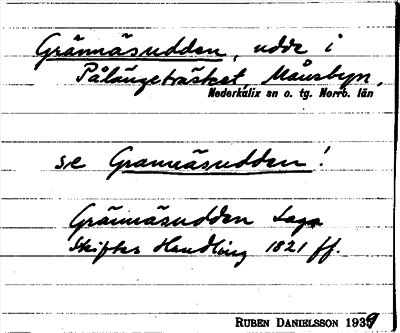 Grännäsudden, udde i
Pålängeträsket Månsbyn,
Nederkalix sn o. tg. Norrb. län
se Grannäsudden!
Grännäsudden Laga
Skiftes Handling 1821 ff.
RUBEN DANIELSSON 1939